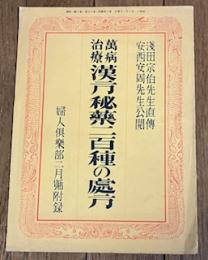 淺田宗伯先生直傳
安西安周先生公開
萬病
治療
漢方秘藥二百種の處方
婦人倶樂部二月號附録